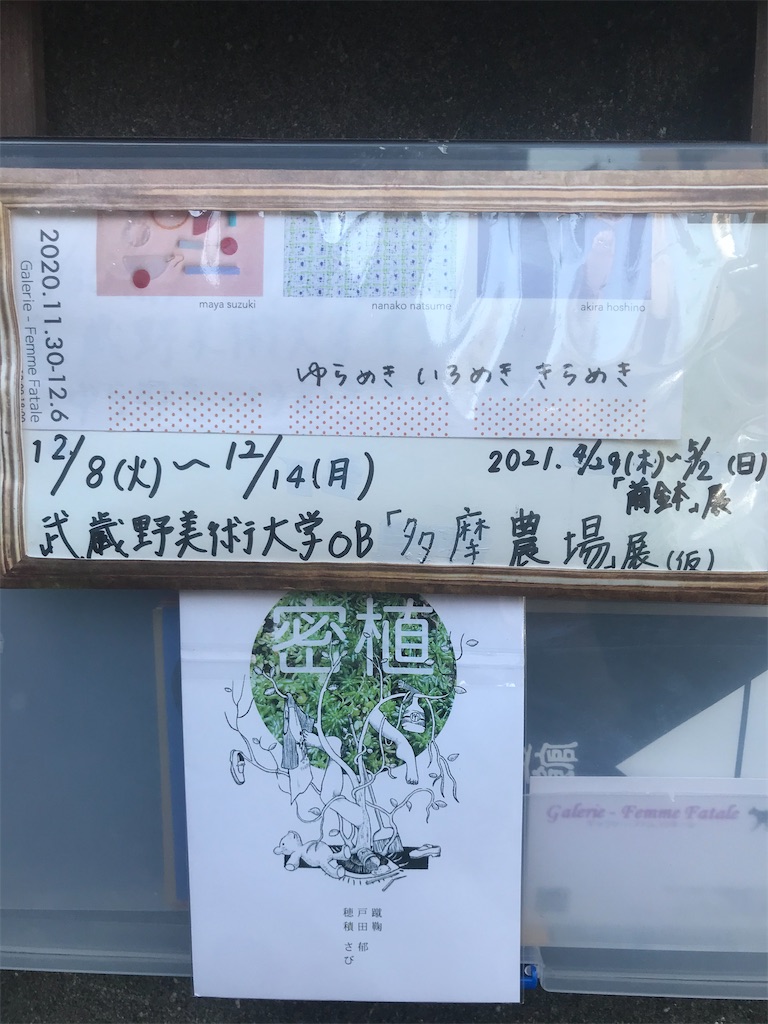 2020.11.30-12.6
Galerie - Femme Fatale
maya suzuki
nanako natsume
akira hoshino
ゆらめき いろめき きらめき
12/8(火)〜12/14(月)
2021. 4/29(木)〜5/2(日)
展
武蔵野美術大学OB「多摩農場」展(仮)
密植
蹴鞠
戸田 郁
穂積 さび
Galerie - Femme Fatale